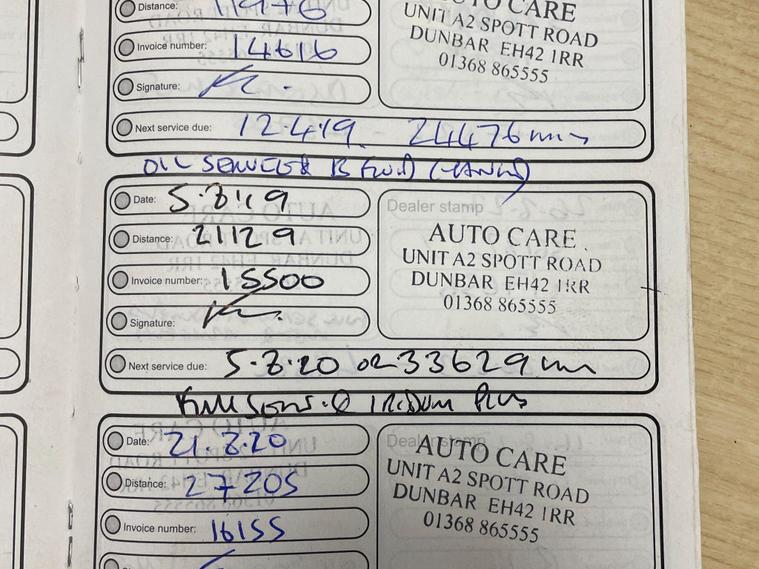 Distance: 11976
AUTO CARE
UNIT A2 SPOTT ROAD
DUNBAR EH42 1RR
01368 865555
Invoice number: 14616
Signature:
Next service due: 12.4.19. - 24476 mls
OIL SERVICE & B FLUID CHANGE
Date: 5.8.19
Distance: 21129
Invoice number: 15500
Signature:
Dealer stamp
AUTO CARE
UNIT A2 SPOTT ROAD
DUNBAR EH42 1RR
01368 865555
Next service due: 5.8.20 OR 33629
IRIDIUM PLUGS
Date: 21.8.20
Distance: 27205
Invoice number: 16155
Dealer stamp
AUTO CARE
UNIT A2 SPOTT ROAD
DUNBAR EH42 1RR
01368 865555